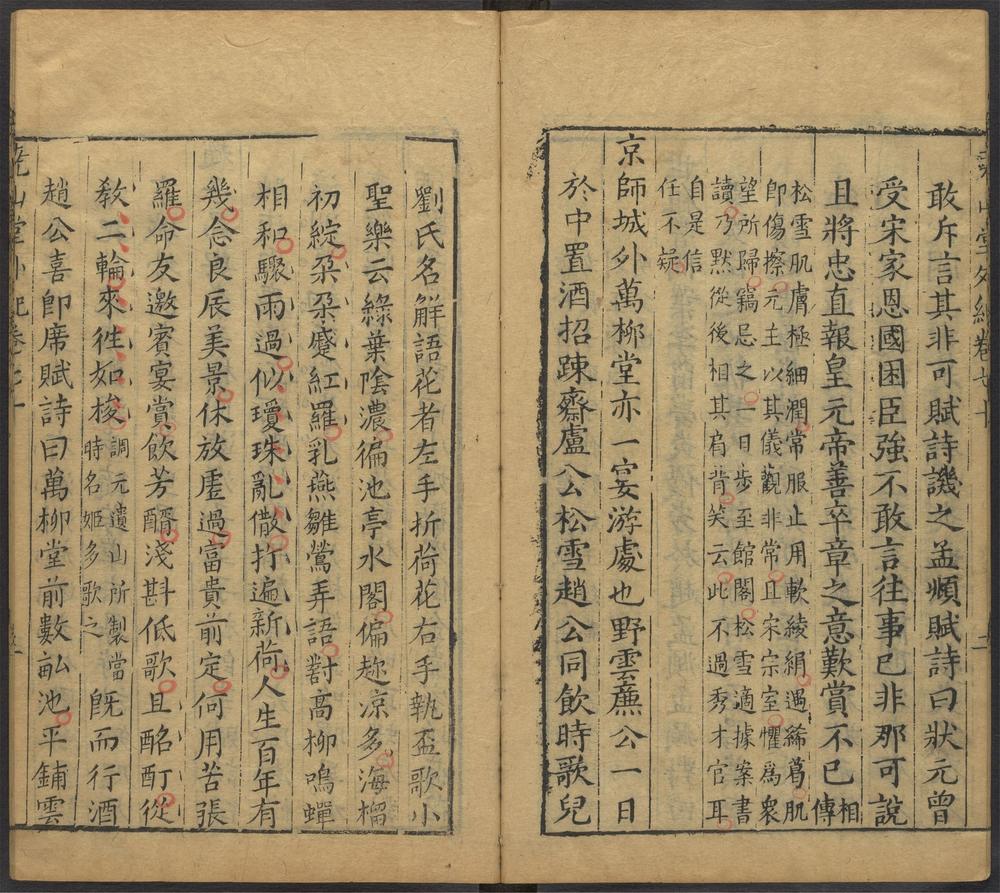 敢斥言其非可賦詩譏之孟頫賦詩曰狀元曾
受宋家恩國困臣強不敢言往事已非那可說
且將忠直報皇元帝善卒章之意歎賞不已相傳
松雪肌膚極細潤常服止用軟綾絹遇絺葛肌
即傷擦元主以其儀觀非常且宋宗室懼爲衆
望所歸竊忌之一日步至館閣松雪適據案書
讀乃默從後相其肩背笑云此不過秀才官耳
自是信
任不疑
京師城外萬柳堂亦一宴游處也野雲廉公一日
於中置酒招踈齋盧公松雪趙公同飲時歌兒
劉氏名解語花者左手折荷花右手執盃歌小
聖樂云綠葉陰濃徧池亭水閣偏趂凉多海榴
初綻朶朶蹙紅羅乳燕雛鶯弄語對高柳鳴蟬
相和驟雨過似瓊珠亂撒打遍新荷人生百年有
幾念良辰美景休放虛過富貴前定何用苦張
羅命友邀賓宴賞飲芳醑淺斟低歌且酩酊從
敎二輪來徃如梭調元遺山所製當時名姬多歌之旣而行酒
趙公喜卽席賦詩曰萬柳堂前數畝池平鋪雲
堯山堂外紀卷七十